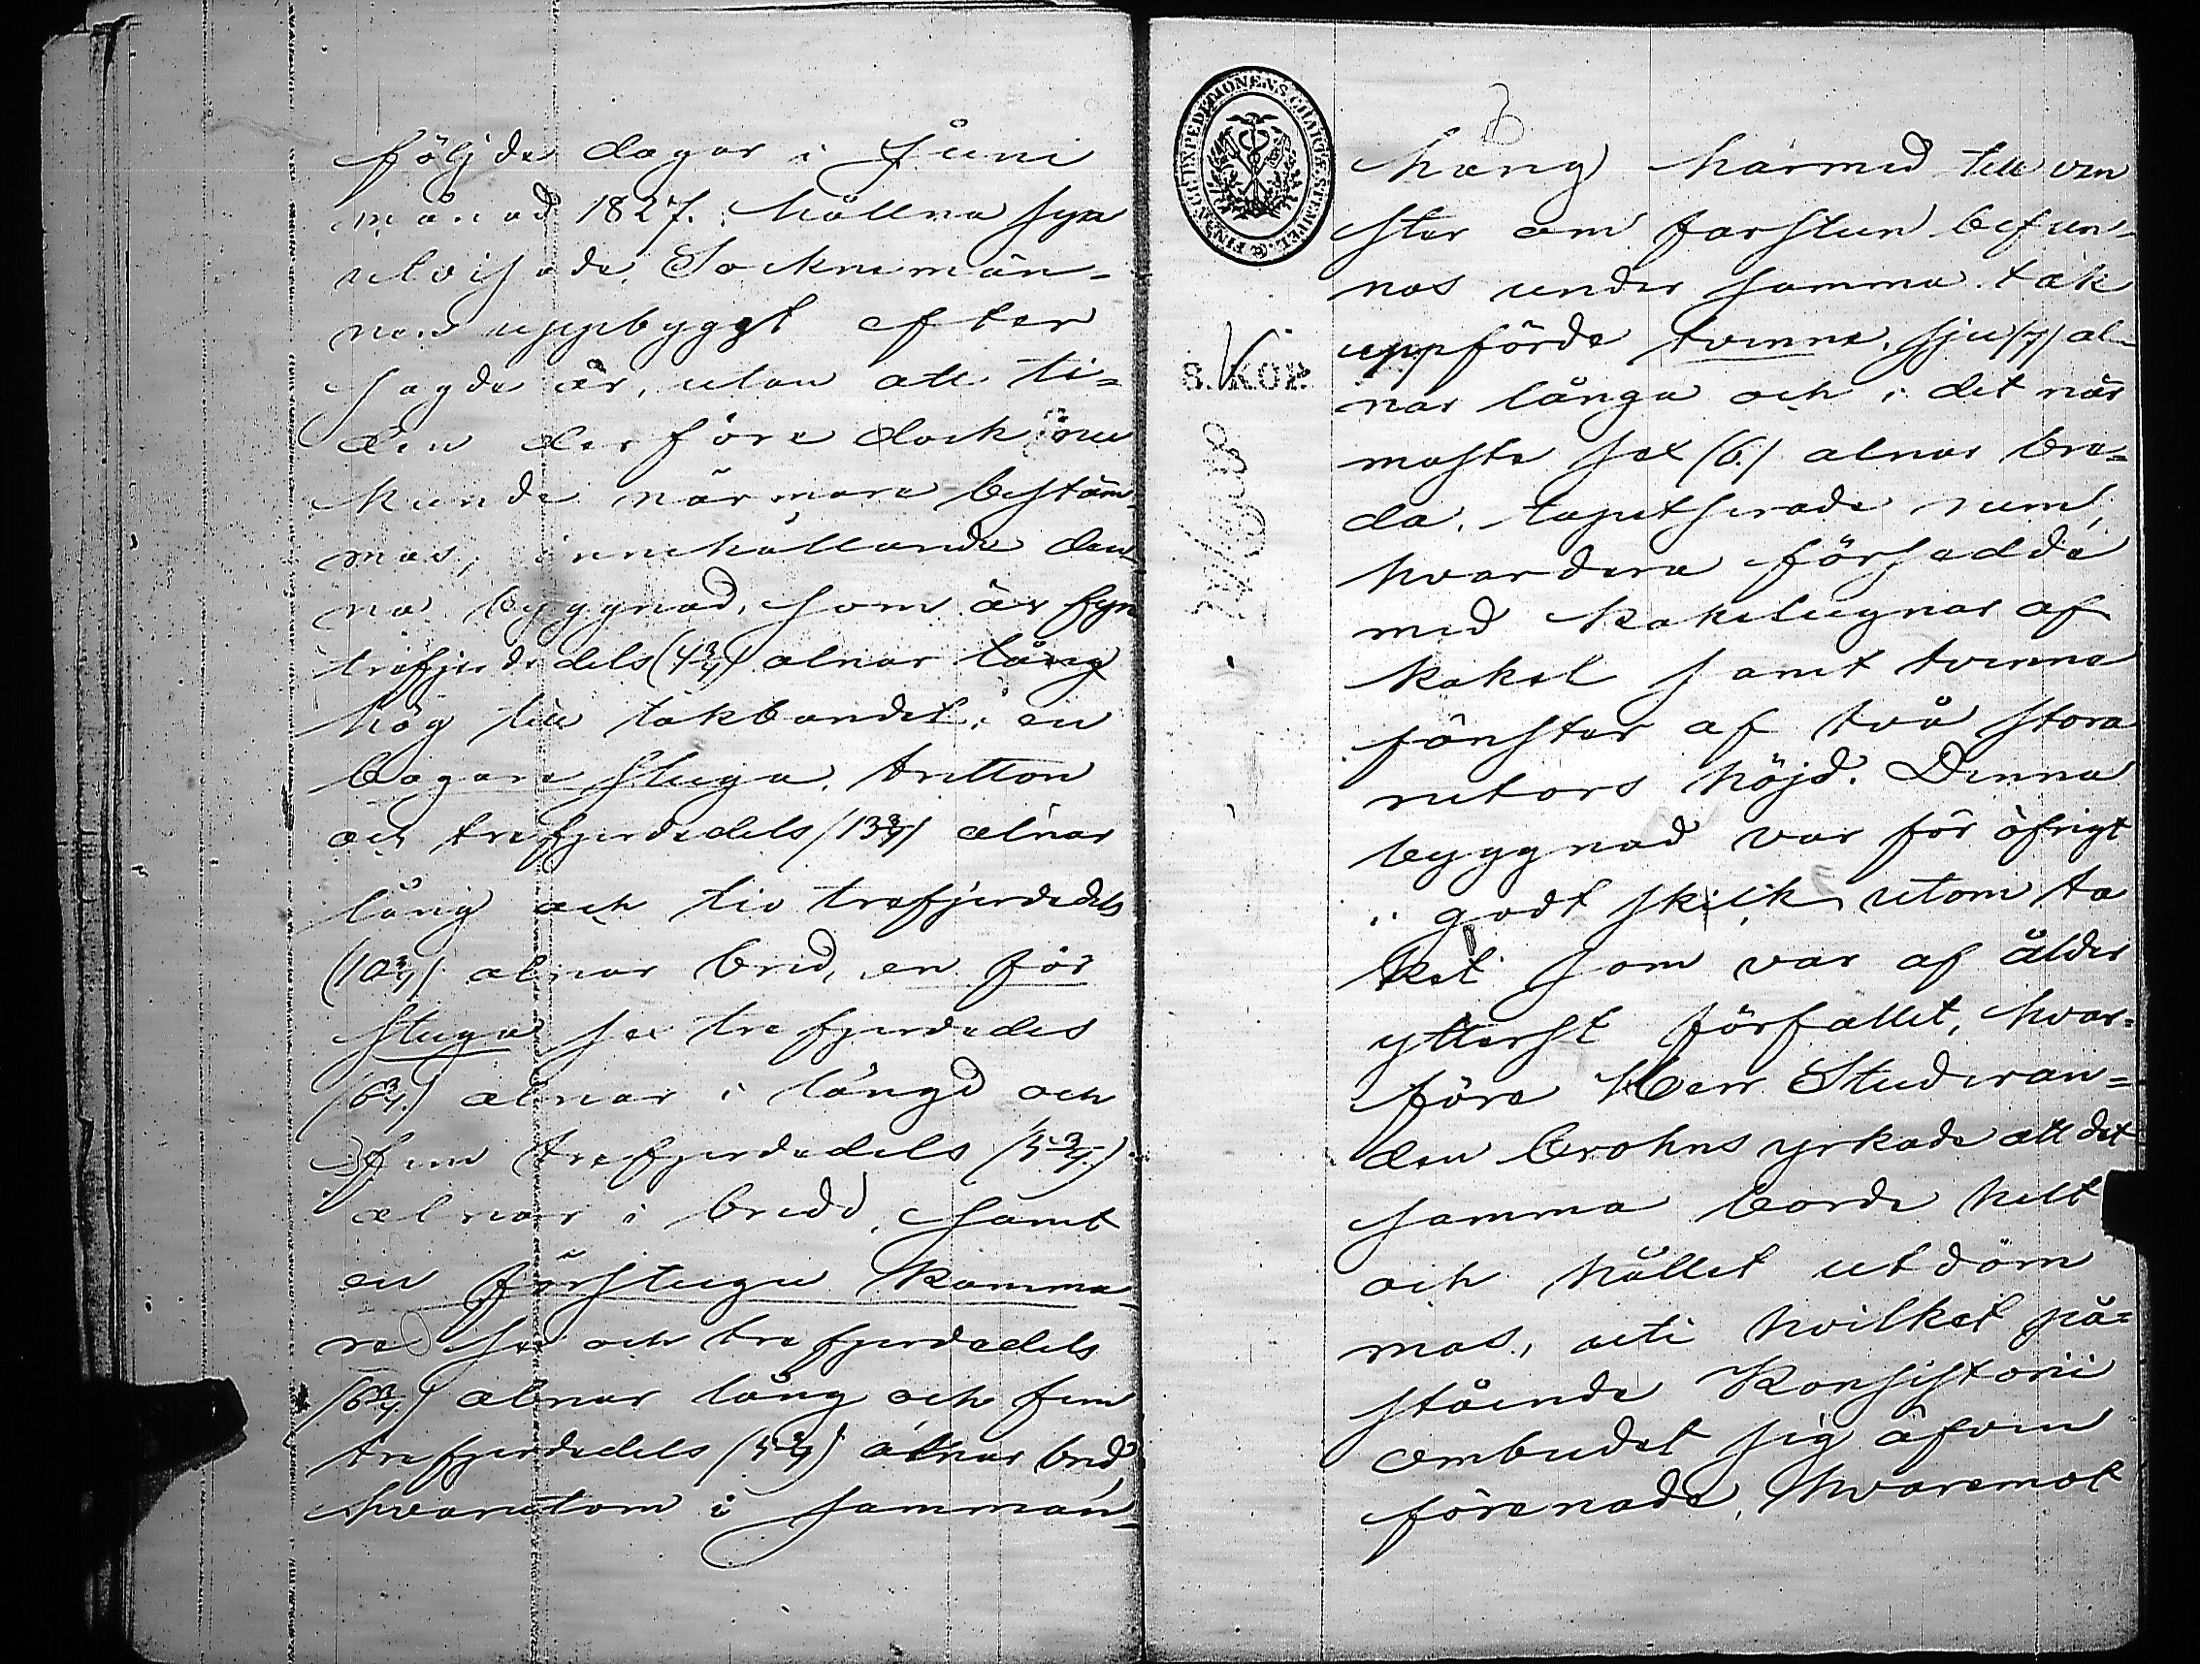 följde dagar i Juni
månad 1827. hållna syn
utvisade, Sockenmän-
nen uppbyggt efter
sagde år, utan att ti-
den derföre dock nu
kunde närmare bestäm-
mas, innehållande den-
na byggnad, som är fyra
trefjerdedels (4 3/4) alnar lång
hög till takbandet, en
bagare stuga, tretton
och trefjerdedels (13 3/4) alnar
lång och tio trefjerdedels
(10 3/4) alnar bred, en för
stuga sex trefjerdedels
(6 3/4.) alnar i längd och
fem trefjerdedels (5 3/4.)
alnar i bredd, samt
en förstugu kamma-
re sex och trefjerdedels
(6 3/4) alnar lång och fem
trefjerdedels (5 3/4) alnar bred
hvarutom i samman-
FINANCE EXPEDITIONENS CHARTÆ STEMPEL.
8. KOP.
hang härmed till ven
ster om farstun befun-
nos under samma tak
uppförde tvenne, sju (7) al-
nar långa och i det när
maste sex (6.) alnar bre-
da, tapetserade rum,
hvardera försedde
med kakelugnar af
kakel samt tvenne
fönster af två stora
rutors höjd. Denna
byggnad var för öfrigt
i godt skick utom ta
ket som var af ålder
ytterst förfallet, hvar-
före Herr Studeran-
den Brohns yrkade att det
samma borde helt
och hållet utdöm
mas, uti hvilket på-
stående Konsistorii
ombudet sig äfven
förenade, hvaremot